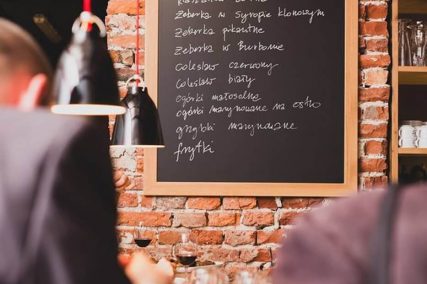 Żeberka w syropie klonowym
Żeberka pikantne
Żeberka w Burbonie
Colesław czerwony
Colesław biały
ogórki małosolne
ogórki marynowane na ostro
grzybki marynowane
frytki